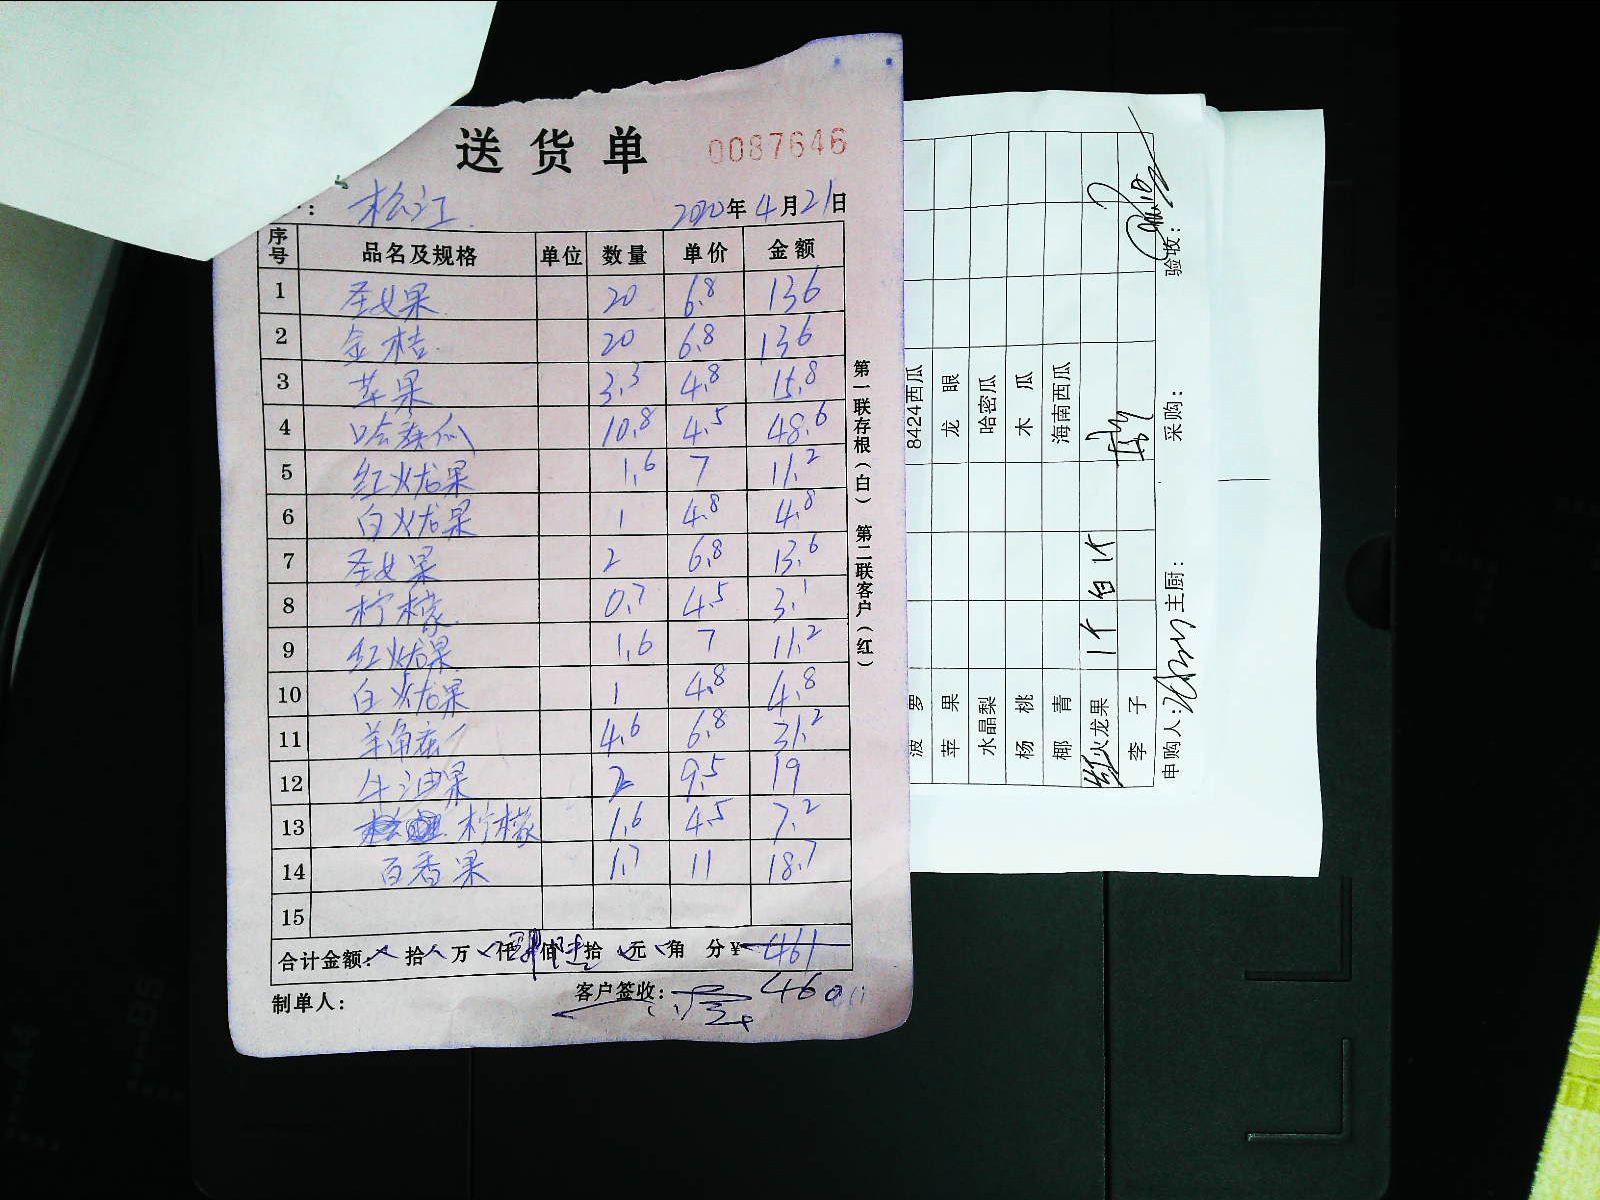 送货单 0087646
: 松江 2020年4月21日
序号 品名及规格 单位 数量 单价 金额
1 圣女果 20 6.8 136
2 金桔 20 6.8 136
3 苹果 3.3 4.8 15.8
4 哈密瓜 10.8 4.5 48.6
5 红火龙果 1.6 7 11.2
6 白火龙果 1 4.8 4.8
7 圣女果 2 6.8 13.6
8 柠檬 0.7 4.5 3.1
9 红火龙果 1.6 7 11.2
10 白火龙果 1 4.8 4.8
11 羊角蜜 4.6 6.8 31.2
12 牛油果 2 9.5 19
13 柠檬 1.6 4.5 7.2
14 百香果 1.7 11 18.7
15
合计金额: 拾 万 仟 肆佰 陆拾 元 角 分¥ 461
制单人: 客户签收: 460
第一联存根(白) 第二联客户(红)
8424西瓜
龙眼
哈密瓜
木瓜
海南西瓜
菠萝
苹果
水晶梨
杨桃
椰青
红火龙果 1个 白1个
李子
申购人: 主厨: 采购: 验收: